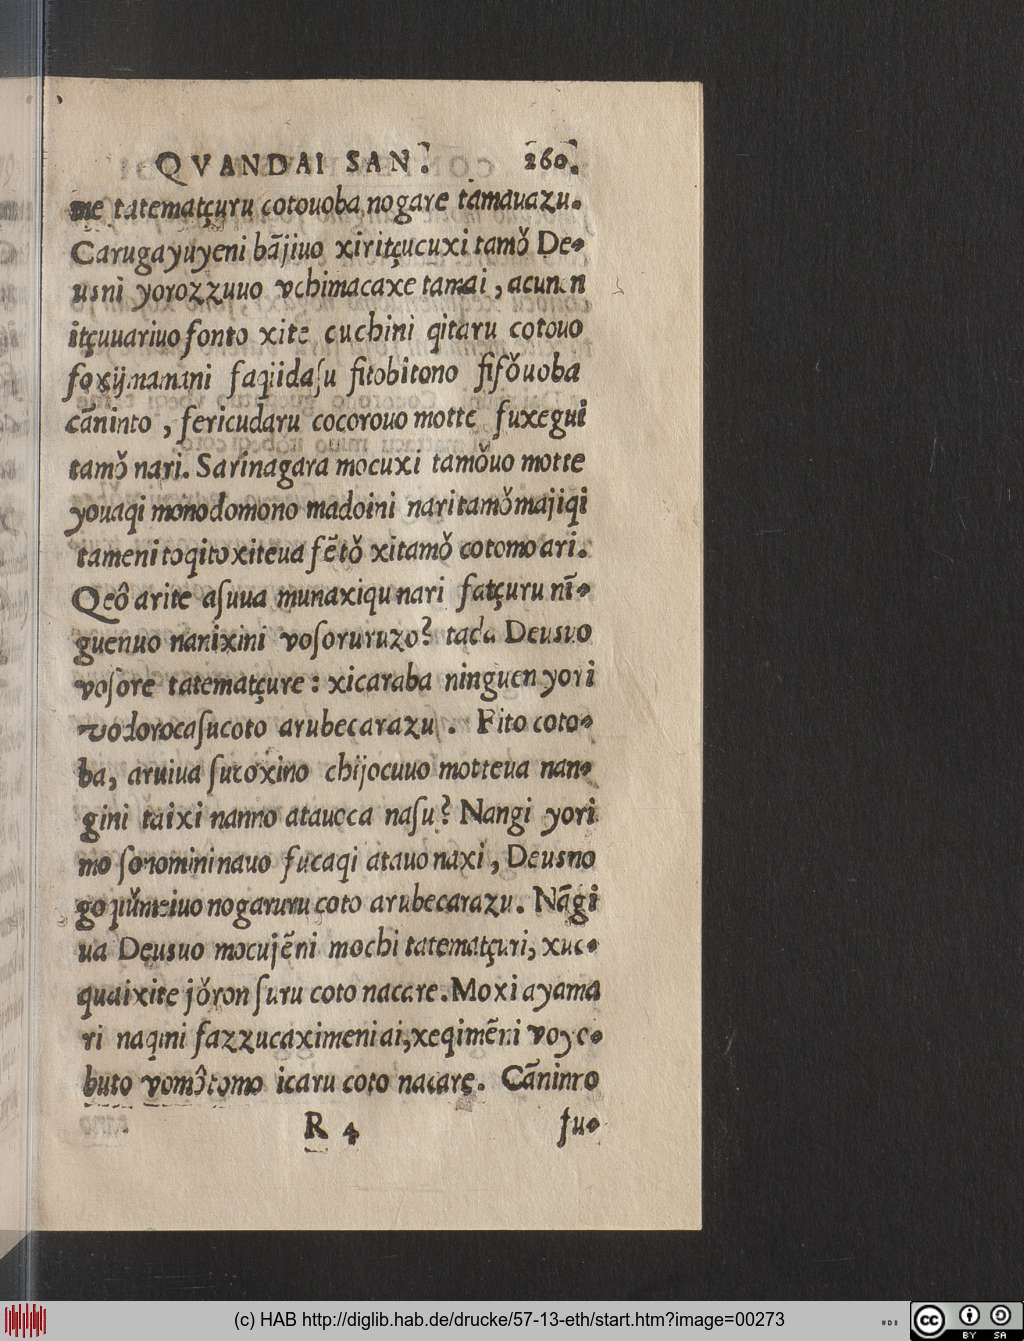 QVANDAI SAN. 260.
me tatematçuru cotouoba nogare tamauazu.
Carugayuyeni bãjiuo xiritçucuxi tamŏ De-
usni yorozzuuo vchimacaxe tamai, acunen
itçuuariuo fonto xite cuchini qitaru cotouo
foxij mamani faqiidaſu fitobitono fifŏuoba
cãninto, fericudaru cocorouo motte fuxegui
tamŏ nari. Sarinagara mocuxi tamŏuo motte
youaqi monodomono madoini naritamŏmajiqi
tameni toqitoxiteua fẽtŏ xitamŏ cotomo ari.
Qeô arite aſuua munaxiqu nari fatçuru nĩ-
guenuo nanixini voſoruruzo? tada Deusuo
voſore tatematçure: xicaraba ninguen yori
vodorocaſucoto arubecarazu. Fito coto-
ba, aruiua ſucoxino chijocuuo motteua nan-
gini taixi nanno atauoca naſu? Nangi yori
mo ſonomini nauo fucaqi atauo naxi, Deusno
go qiŭmeiuo nogaruru coto arubecarazu. Nãgi
ua Deusuo mocujẽni mochi tatematçuri, xuc-
quaixite jŏron ſuru coto nacare. Moxi ayama
ri naqini fazzucaximeni ai, xeqimẽni voyo-
buto yomôtomo icaru coto nacare. Cãninto
R 4 fu-
(c) HAB http://diglib.hab.de/drucke/57-13-eth/start.htm?image=00273
cc BY SA